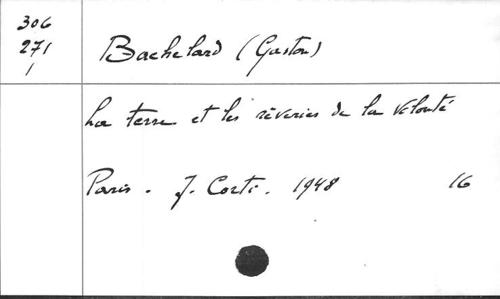 306
271
1
Bachelard (Gaston)
La terre et les rêveries de la volonté
Paris. J. Corti. 1948 16